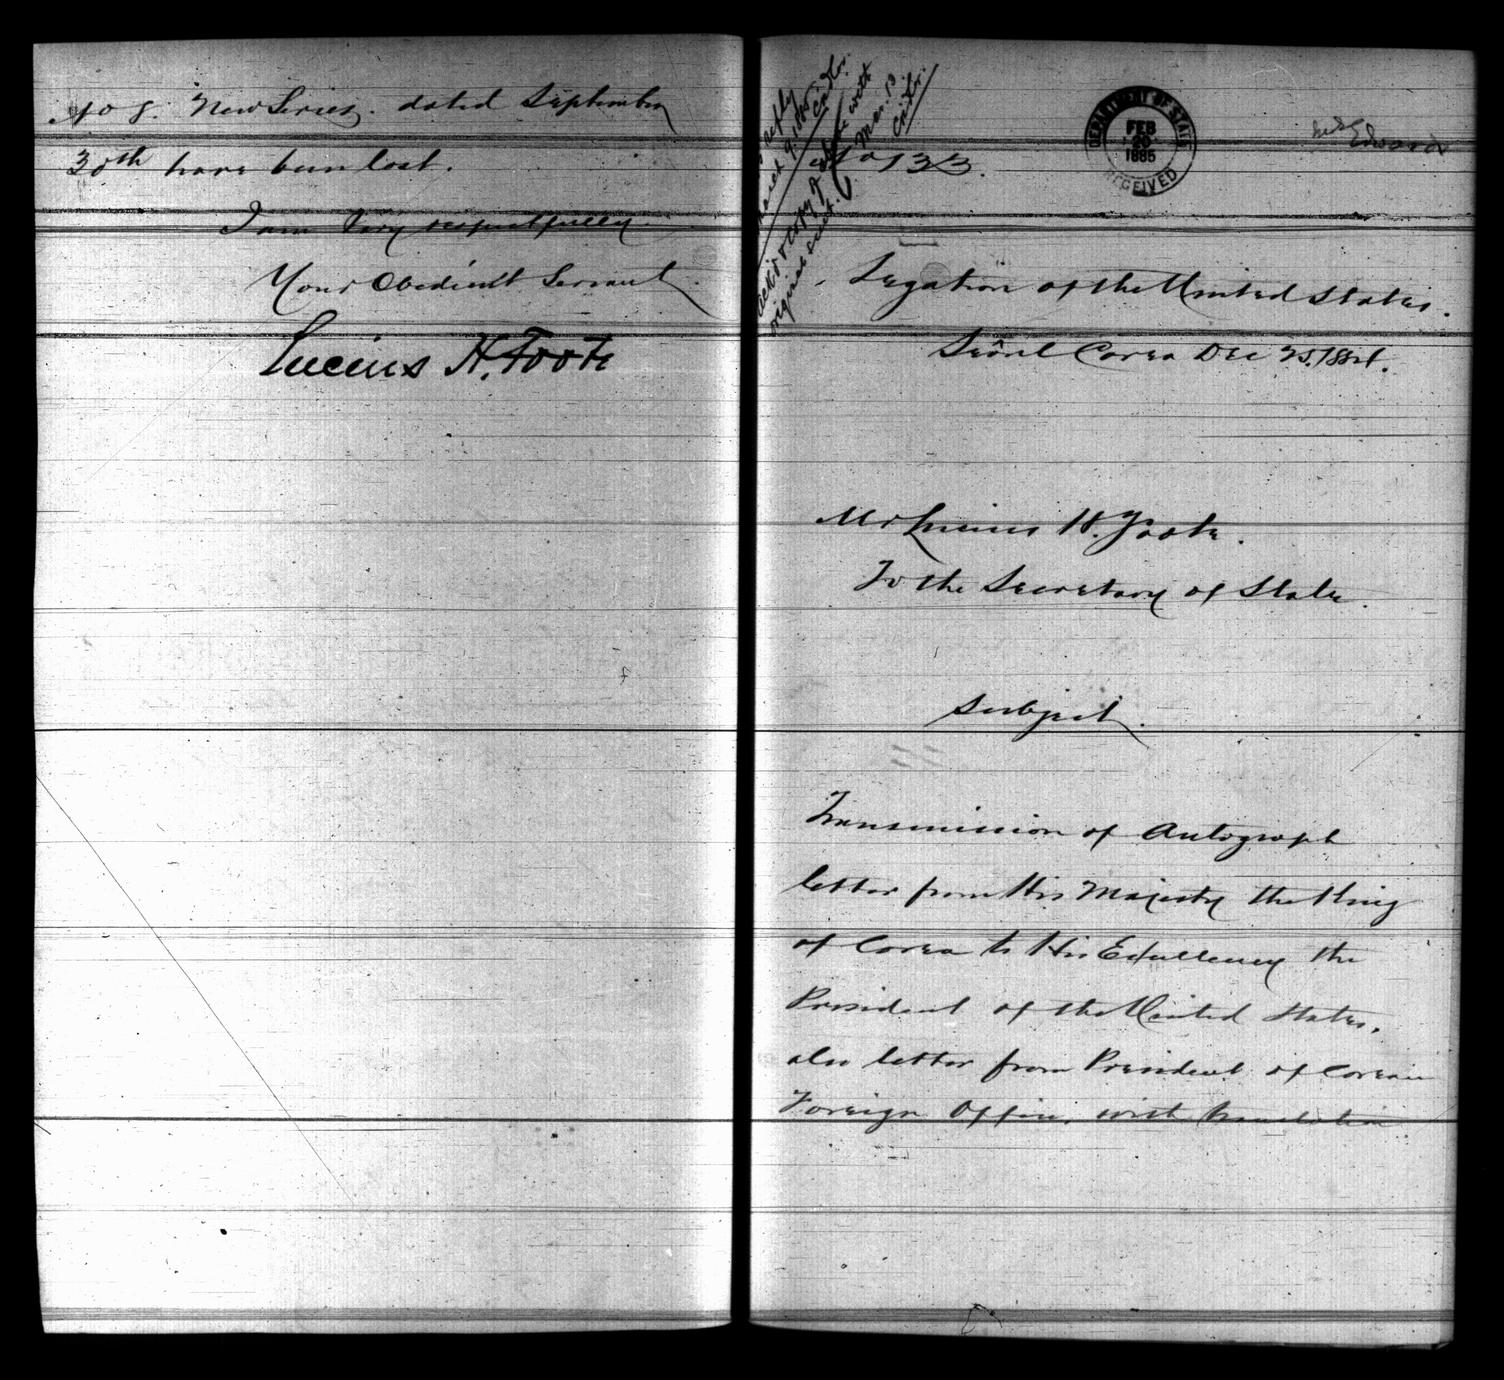 No 8. New Series. dated September
30th have been lost.
I am Very respectfully
Your Obedient Servant
Lucius H. Foote
No 133.
DEPARTMENT OF STATE
FEB
20
1885
RECEIVED
Legation of the United States.
Seoul Corea Dec 25. 1884.
Mr Lucius H. Foote.
To the Secretary of State.
Subject.
Transmission of Autograph
letter from His Majesty the King
of Corea to His Excellency the
President of the United States.
also letter from President of Corean
Foreign Office. with translation